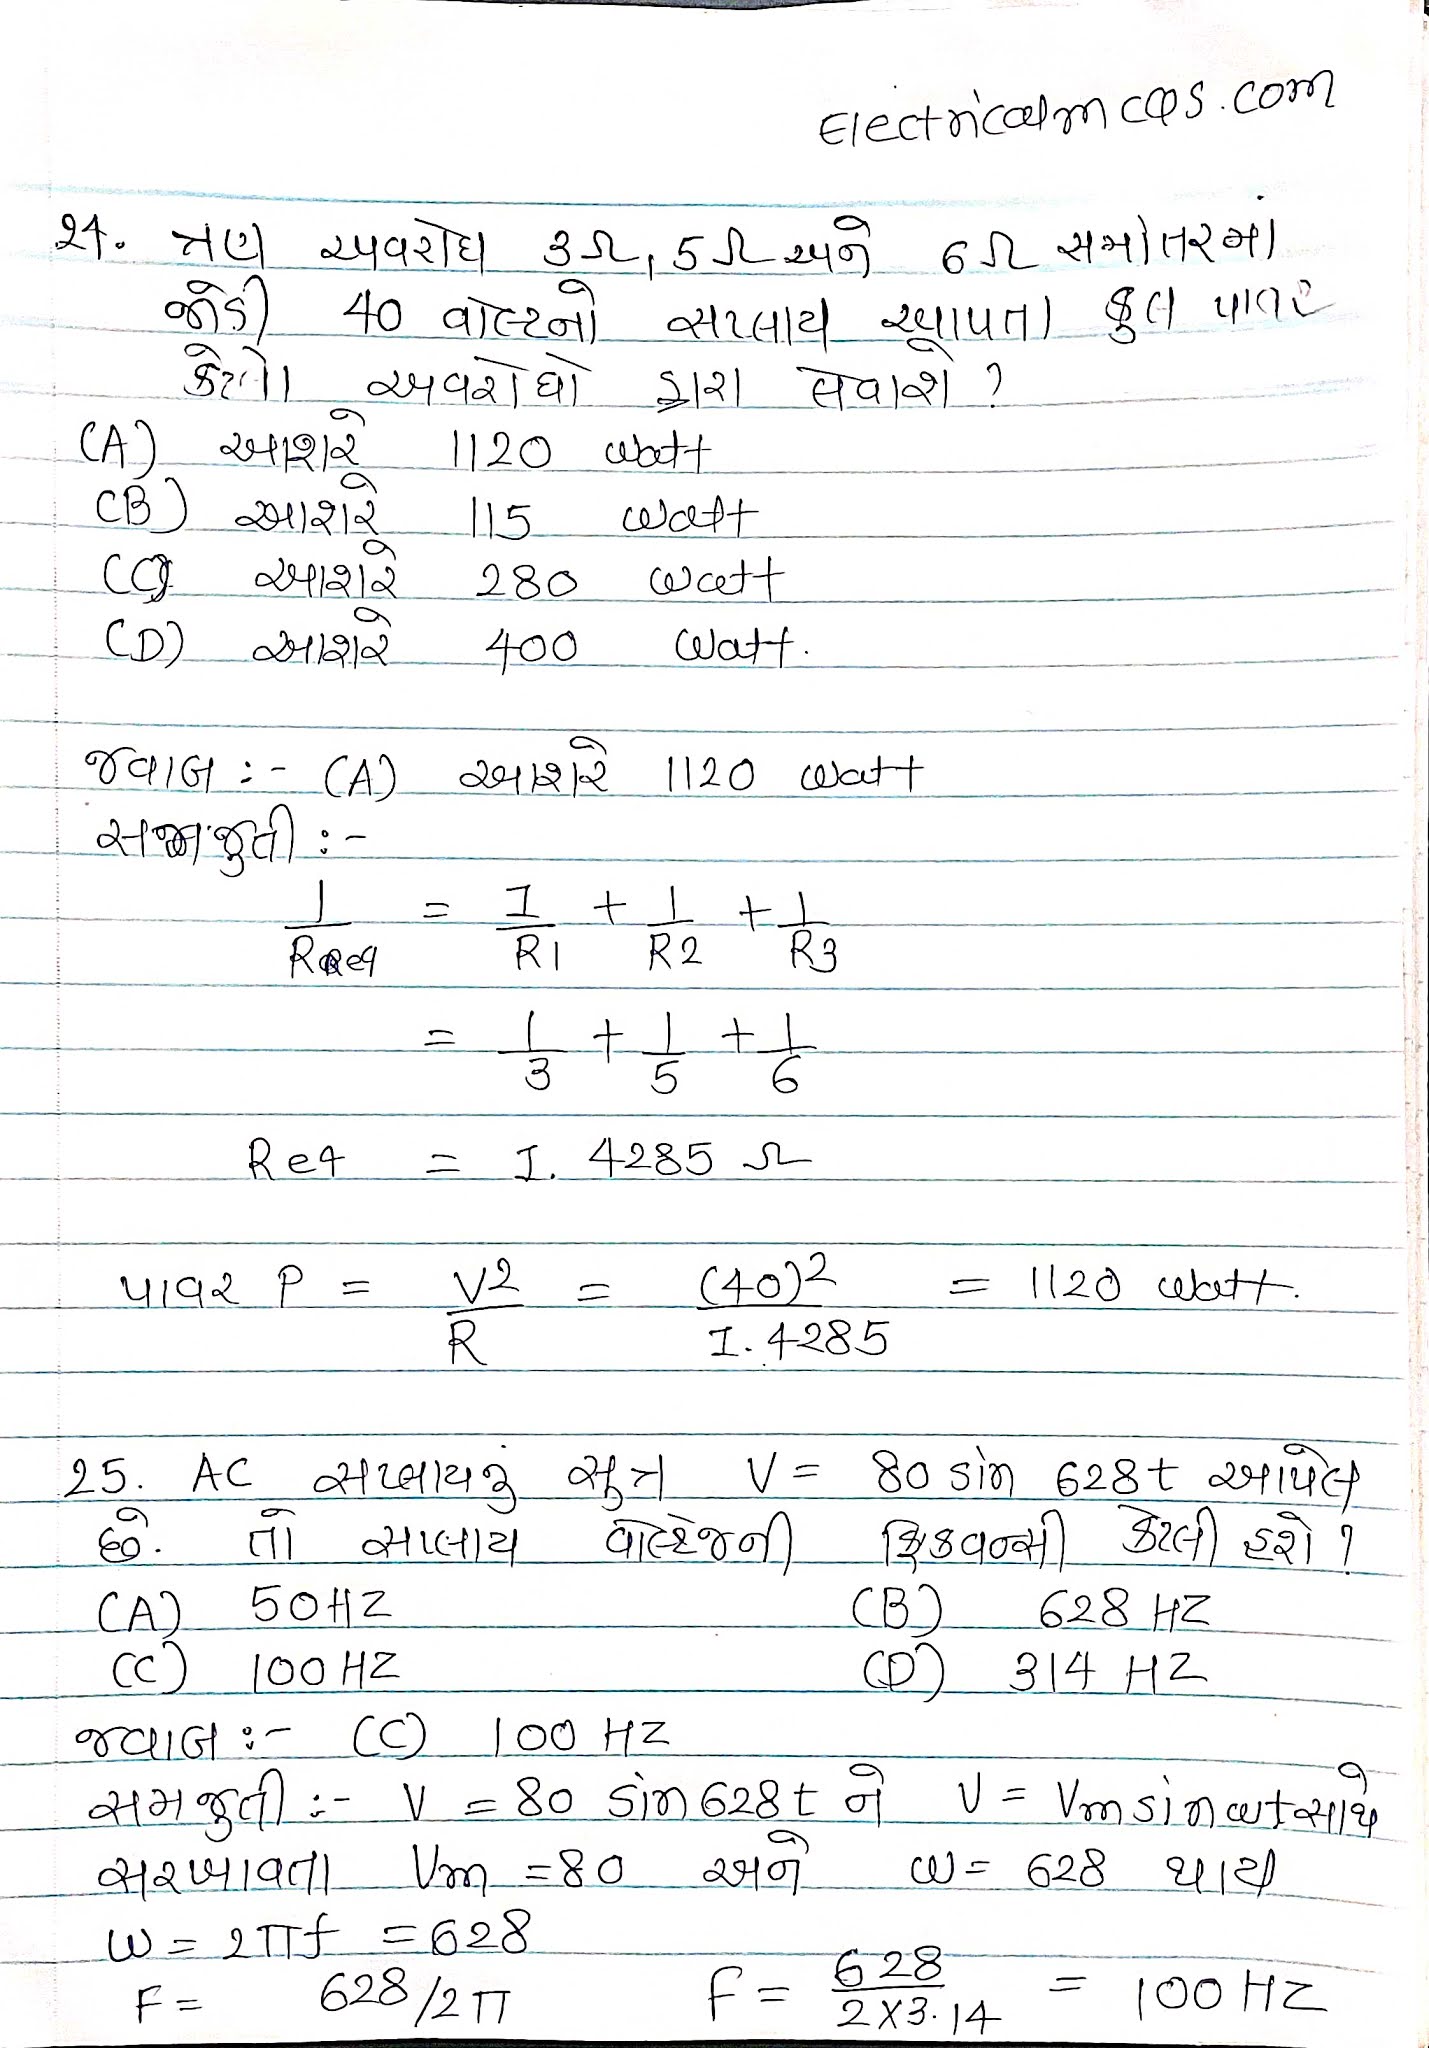 Electricalmcqs.com
24. ત્રણ અવરોધ 3Ω, 5Ω અને 6Ω સમાંતરમાં
જોડી 40 વોલ્ટનો સપ્લાય આપતા કુલ પાવર
કેટલો અવરોધો દ્વારા લેવાશે ?
(A) આશરે 1120 watt
(B) આશરે 115 watt
(C) આશરે 280 watt
(D) આશરે 400 watt.
જવાબ :- (A) આશરે 1120 watt
સમજુતી :-
1/Req = 1/R1 + 1/R2 + 1/R3
= 1/3 + 1/5 + 1/6
Req = 1.4285 Ω
પાવર P = V2/R = (40)2/1.4285 = 1120 watt.
25. AC સપ્લાયનું સુત્ર V = 80 sin 628t આપેલ
છે. તો સપ્લાય વોલ્ટેજની ફ્રિકવન્સી કેટલી હશે ?
(A) 50HZ (B) 628 HZ
(C) 100HZ (D) 314 HZ
જવાબ :- (C) 100 HZ
સમજુતી :- V = 80 sin 628t ને V = Vm sin wt સાથે
સરખાવતા Vm = 80 અને w = 628 થાય
W = 2πf = 628
F = 628/2π F = 628/2X3.14 = 100 HZ